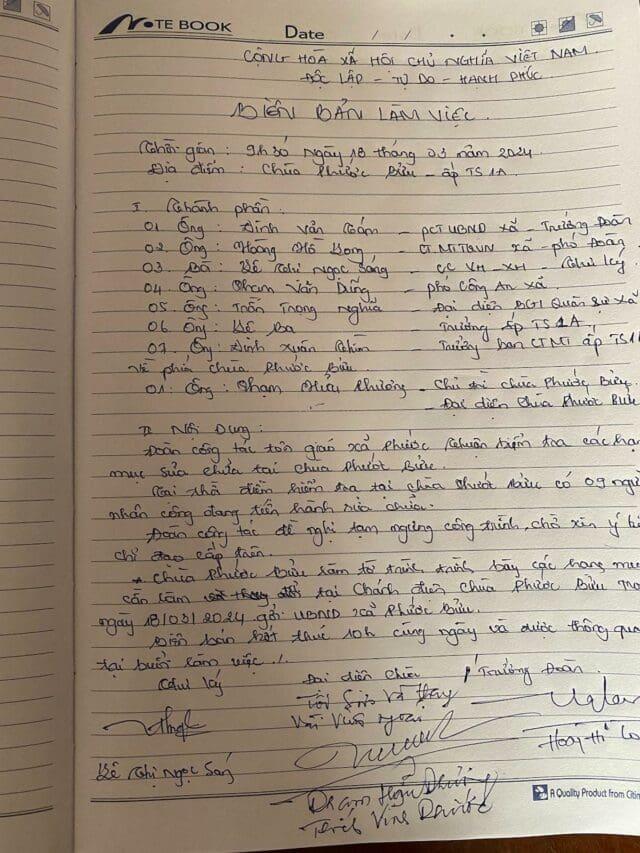 NOTE BOOK
Date / / . .
CỘNG HÒA XÃ HỘI CHỦ NGHĨA VIỆT NAM
ĐỘC LẬP - TỰ DO - HẠNH PHÚC
BIÊN BẢN LÀM VIỆC.
Thời gian : 9h30 ngày 18 tháng 03 năm 2024
Địa điểm : Chùa Phước Bửu - ấp TS1A.
I. Thành phần :
01. Ông : Đinh Văn - PCT UBND xã - Trưởng Đoàn
02. Ông : Hoàng Hồ - CTMTTQVN xã - phó Đoàn
03. Bà : Lê Thị Ngọc Sáng - CC VH - XH - Thư ký
04. Ông : Phạm Văn Dũng - phó Công An xã.
05. Ông : Trần Trọng Nghĩa - Đại diện BCH Quân Sự xã
06. Ông : Lê Ba - Trưởng ấp TS1A,
07. Ông : Đinh Xuân - Trưởng ban CTMT ấp TS1A
Về phía chùa Phước Bửu
01. Ông : Phạm Hữu Phương - Chủ trì chùa Phước Bửu.
- Đại diện Chùa Phước Bửu
II. Nội Dung :
Đoàn công tác tôn giáo xã Phước Thuận kiểm tra các hạng
mục sửa chữa tại chùa Phướt Bửu.
Tại thời điểm kiểm tra tại chùa Phướt Bửu có 09 người
nhân công đang tiến hành sửa chữa.
Đoàn công tác đề nghị tạm ngưng công trình, chờ xin ý ki
chỉ đạo cấp trên.
* Chùa Phước Bửu làm tờ trình trình bày các hạng mục
cần làm tại Chánh điện Chùa Phước Bửu
ngày 18/03/2024 gửi UBND xã Phước Bửu.
Biên bản kết thúc 10h cùng ngày và được thông qua
tại buổi làm việc ./.
Thư ký Đại diện Chùa Trưởng Đoàn
Lê Thị Ngọc Sáng
A Quality Product from